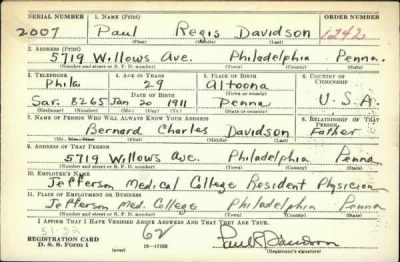 SERIAL NUMBER 1. NAME (Print) ORDER NUMBER
2007 Paul Regis Davidson 1242
(First) (Middle) (Last)
2. ADDRESS (Print)
5719 Willows Ave. Philadelphia Penna.
(Number and street or R. F. D. number) (Town) (County) (State)
3. TELEPHONE 4. AGE IN YEARS 5. PLACE OF BIRTH 6. COUNTRY OF CITIZENSHIP
Phila 29 Altoona
DATE OF BIRTH (Town or county)
Sar. 8265 Jan 20 1911 Penna U.S.A.
(Exchange) (Number) (Mo.) (Day) (Yr.) (State or country)
7. NAME OF PERSON WHO WILL ALWAYS KNOW YOUR ADDRESS 8. RELATIONSHIP OF THAT PERSON
Bernard Charles Davidson Father
(First) (Middle) (Last)
9. ADDRESS OF THAT PERSON
5719 Willows Ave. Philadelphia Penna
(Number and street or R. F. D. number) (Town) (County) (State)
10. EMPLOYER'S NAME
Jefferson Medical College Resident Physician
11. PLACE OF EMPLOYMENT OR BUSINESS
Jefferson Med. College Philadelphia Penna
(Number and street or R. F. D. number) (Town) (County) (State)
I AFFIRM THAT I HAVE VERIFIED ABOVE ANSWERS AND THAT THEY ARE TRUE.
51-32 62 Paul R Davidson
REGISTRATION CARD
D. S. S. Form 1 (over) 16-17105 (Registrant's signature)